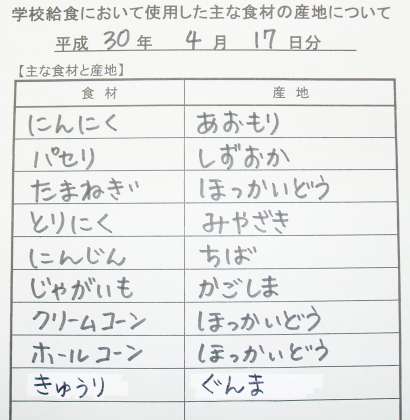 学校給食において使用した主な食材の産地について
平成 30 年 4 月 17 日分
【主な食材と産地】
食材 産地
にんにく あおもり
パセリ しずおか
たまねぎ ほっかいどう
とりにく みやざき
にんじん ちば
じゃがいも かごしま
クリームコーン ほっかいどう
ホールコーン ほっかいどう
きゅうり ぐんま